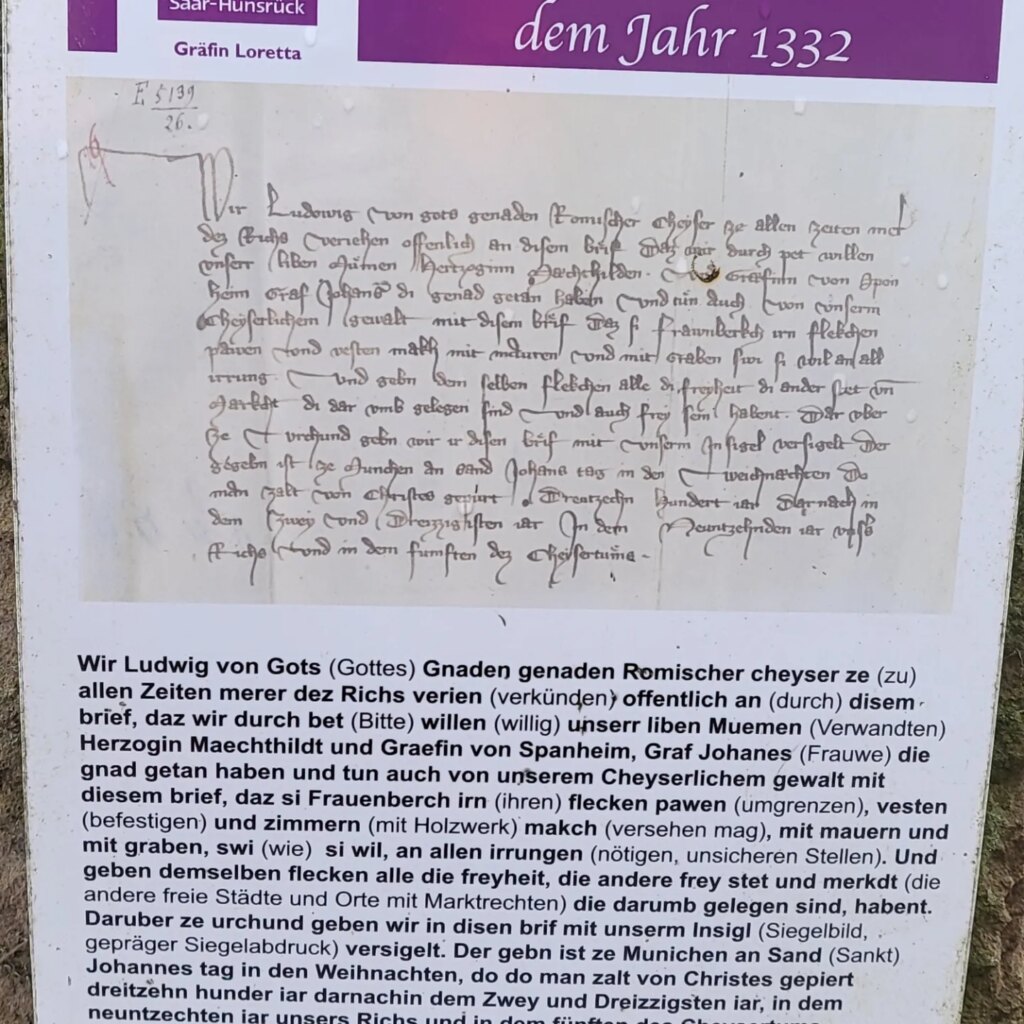 Saar-Hunsrück
Gräfin Loretta
dem Jahr 1332
E 5139
26.
Wir Ludowig von gots genaden Romischer Cheyser ze allen zeiten mer
dez Richs veriehen offenlich an disem brif Daz wir durch pet willen
unserr liben Mumen Hertzoginn Maechthilden Grafinn von Spon
heim Graf Johans di genad getan haben und tun auch von unserm
Cheyserlichem gewalt mit disem brif Daz si Frawnberkch irn flekchen
pawen vnd vesten makh mit mauren vnd mit graben swi si wil an all
irrung vnd gebn dem selben flekchen alle di freyheit di ander stet vn
Markcht di dar vmb gelegen sind vnd auch frey sein habent. Dar vber
ze vrchund gebn wir ir disen brif mit vnserm Insigel versigelt Der
gegebn ist ze Munchen an sand Johans tag in den weichnachten Do
man zalt von Christes gepurt Dreutzechn hundert iar Darnach in
dem Zwey vnd Dreizzigisten iar In dem Newntzehnden iar vnsers
Richs vnd in dem funften dez Cheysertums
Wir Ludwig von Gots (Gottes) Gnaden genaden Romischer cheyser ze (zu)
allen Zeiten merer dez Richs verien (verkünden) offentlich an (durch) disem
brief, daz wir durch bet (Bitte) willen (willig) unserr liben Muemen (Verwandten)
Herzogin Maechthildt und Graefin von Spanheim, Graf Johanes (Frauwe) die
gnad getan haben und tun auch von unserem Cheyserlichem gewalt mit
diesem brief, daz si Frauenberch irn (ihren) flecken pawen (umgrenzen), vesten
(befestigen) und zimmern (mit Holzwerk) makch (versehen mag), mit mauern und
mit graben, swi (wie) si wil, an allen irrungen (nötigen, unsicheren Stellen). Und
geben demselben flecken alle die freyheit, die andere frey stet und merkdt (die
andere freie Städte und Orte mit Marktrechten) die darumb gelegen sind, habent.
Daruber ze urchund geben wir in disen brif mit unserm Insigl (Siegelbild,
gepräger Siegelabdruck) versigelt. Der gebn ist ze Munichen an Sand (Sankt)
Johannes tag in den Weihnachten, do do man zalt von Christes gepiert
dreitzehn hunder iar darnachin dem Zwey und Dreizzigsten iar, in dem
neuntzechten iar unsers Richs und in dem fünften des Cheysertums